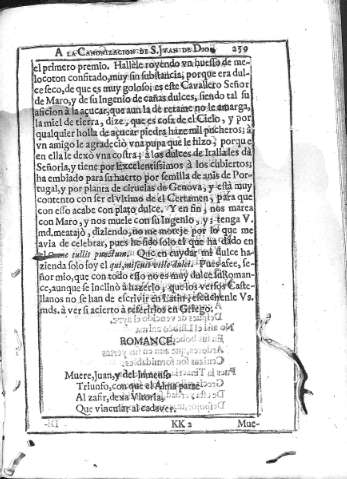 A LA CANONIZACION DE S. IVAN DE DIOS. 259
el primero premio. Hallèle royendo vn huesso de me-
locoton confitado, muy sin substancia, porque era dul-
ce seco, de que es muy goloso; es este Cavallero Señor
de Maro, y de su Ingenio de cañas dulces, siendo tal su
aficion à la açucar, que aun la de retame no le amarga,
la miel de tierra, dize, que es cosa de el Cielo, y por
qualquier holla de açucar piedra haze mil pucheros; à
vn amigo le agradeciò vna pupa que le hizo, porque
en ella le dexò vna costra; à los dulces de Italia les dà
Señoria, y tiene por Excelentissimos à los cubiertos;
ha embiado para su huerto por semilla de anis de Por-
tugal, y por planta de ciruelas de Genova, y està muy
contento con ser el vltimo de el Certamen, para que
con esso acabe con plato dulce. Y en fin, nos marea
con Maro, y nos muele con su Ingenio, y; tenga V.
md. me atajò, diziendo, no me moteje por lo que me
avia de celebrar, pues he sido solo el que ha dado en
el Omne tulit punctum. Que en cuydar mi dulce ha-
zienda solo soy el qui miscuit vtile dulci. Pues asse, se-
ñor mio, que con todo esso no es muy dulce su Roman-
ce, aunque se inclinò à hazerlo, que los versos Caste-
llanos no se han de escrivir en Latin; escuchenle Vs.
mds. à ver si acierto à referirlos en Griego.
ROMANCE.
Muere, Juan, y del Inmenso
Triunfo, con que el Alma parte
Al zafir, dexa Vitoria,
Que vincular al cadaver.
KK 2 Mue-